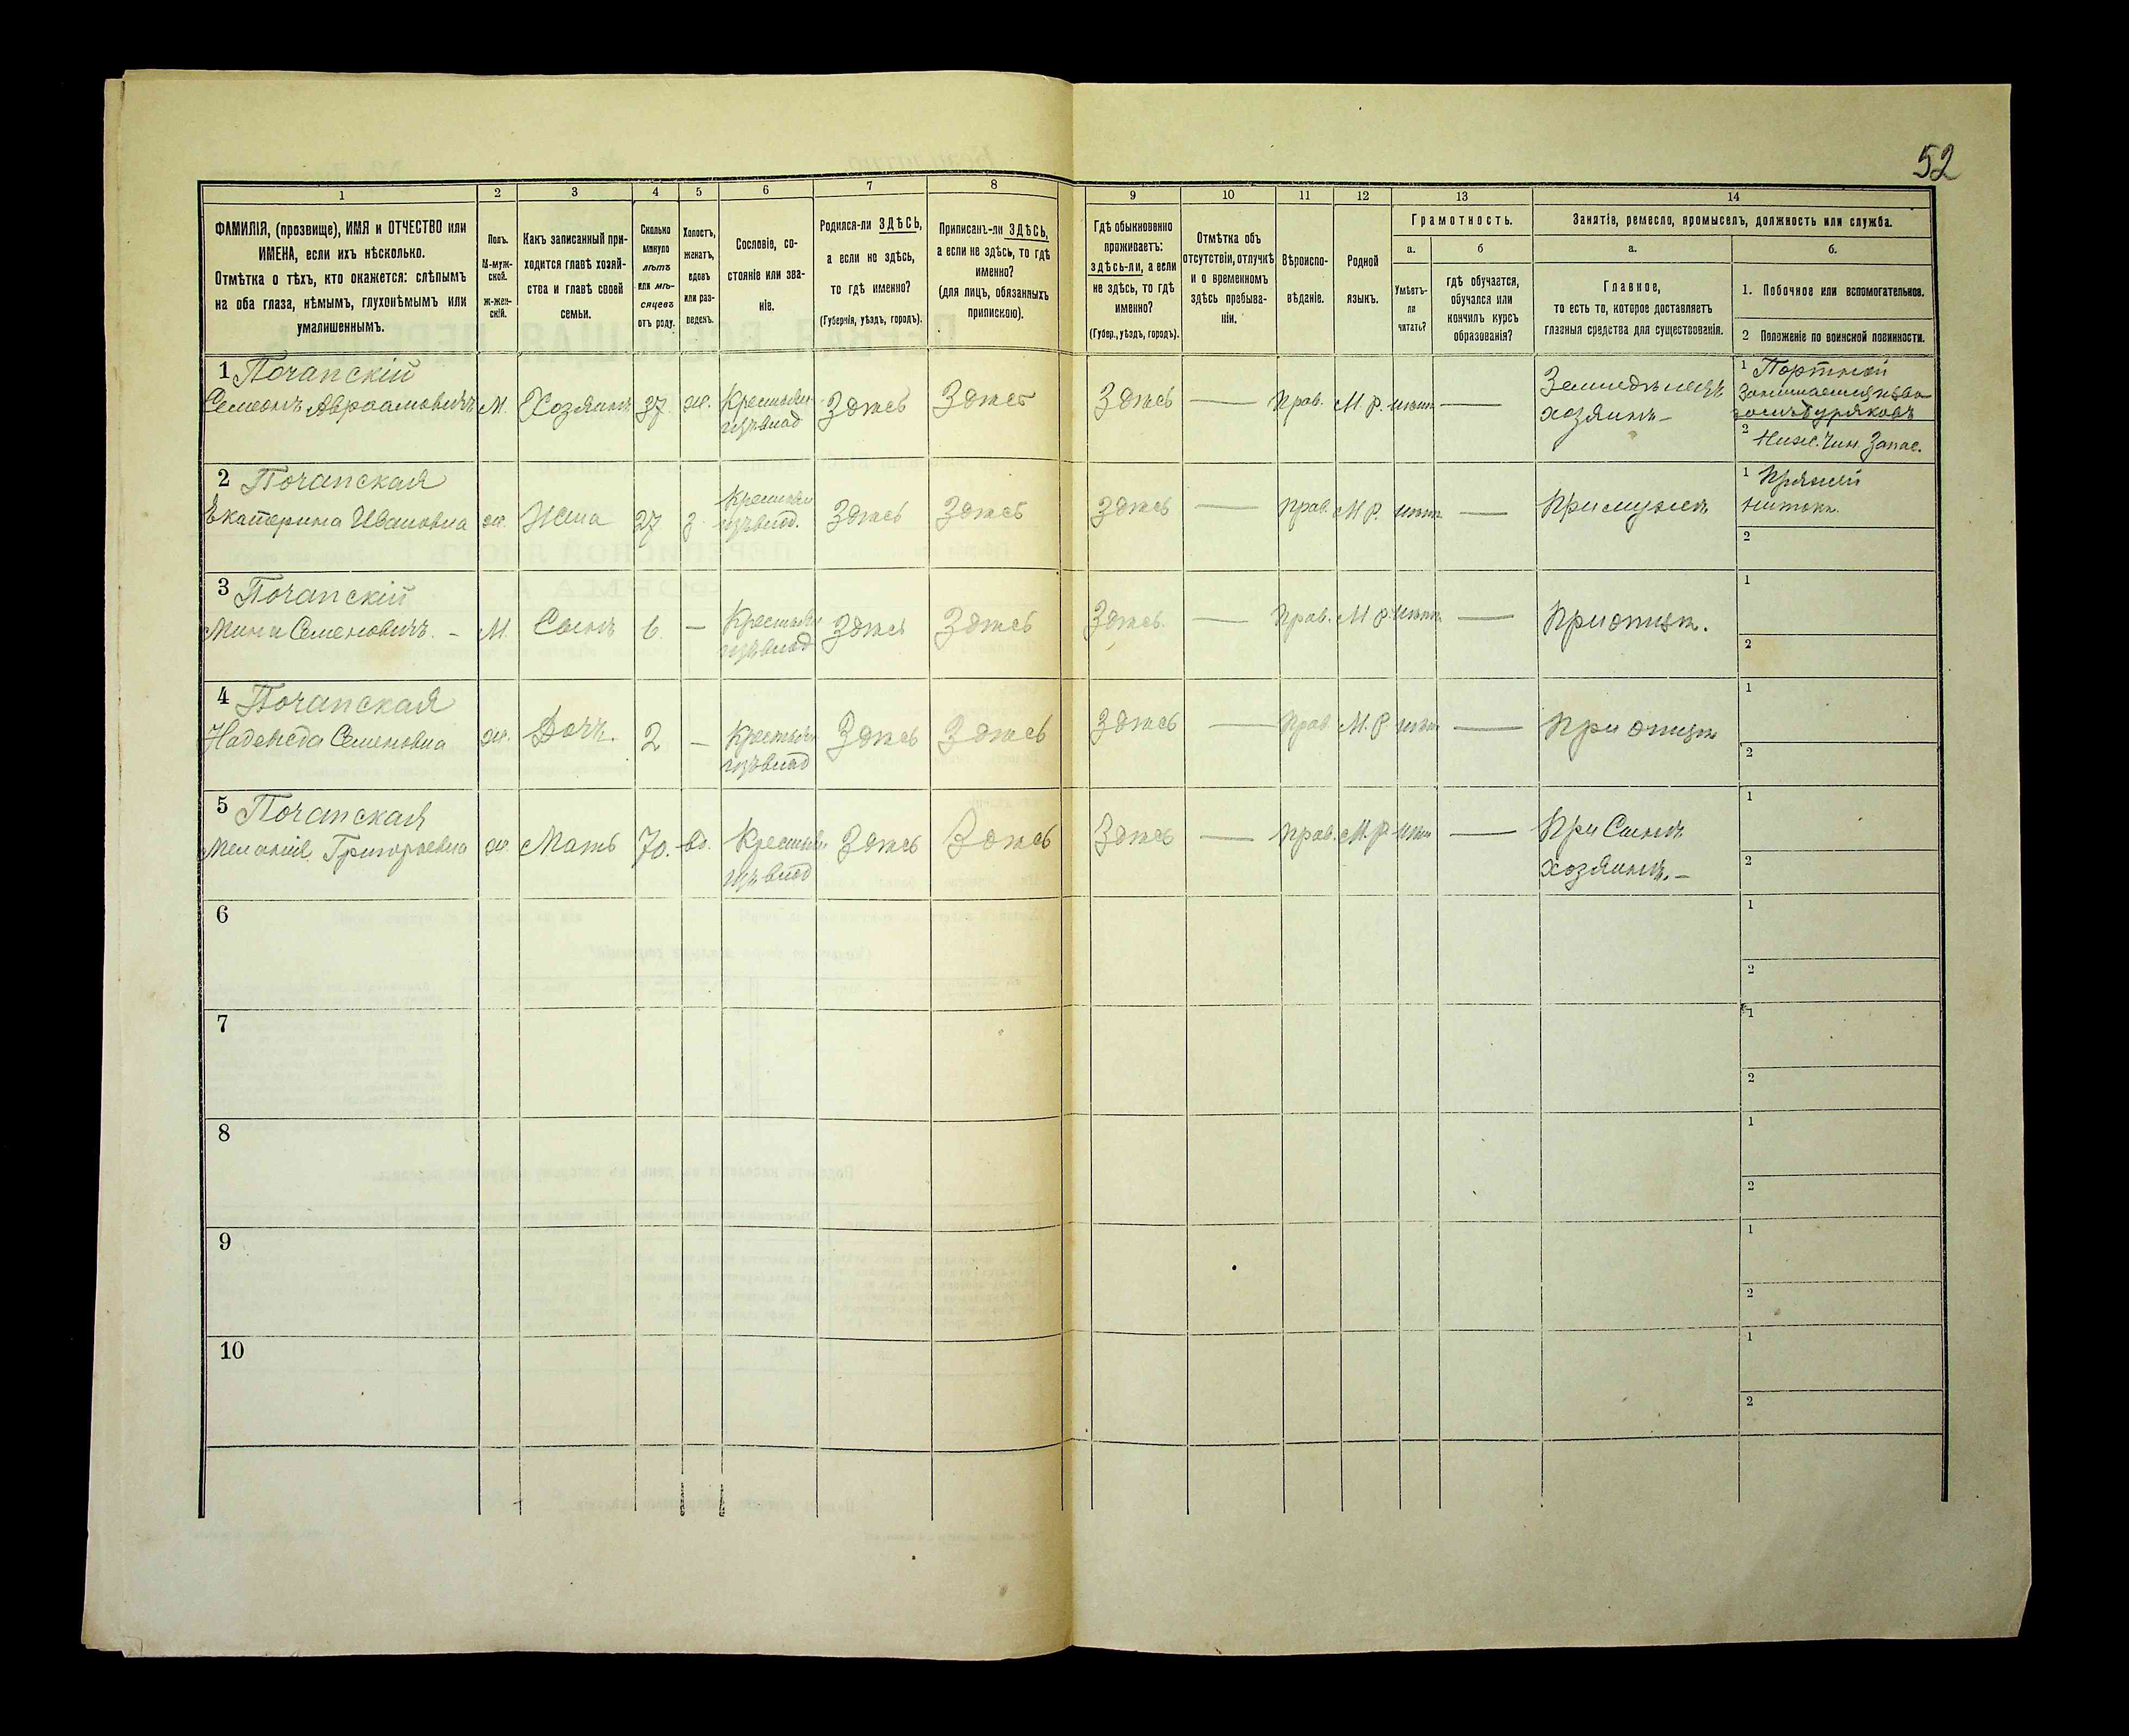 52
1 2 3 4 5 6 7 8 9 10 11 12 13 14
ФАМИЛІЯ, (прозвище), ИМЯ и ОТЧЕСТВО или
ИМЕНА, если ихъ нѣсколько.
Отмѣтка о тѣхъ, кто окажется: слѣпымъ
на оба глаза, нѣмымъ, глухонѣмымъ или
умалишеннымъ.
Полъ.
М-муж-
ской.
Ж-жен-
скій.
Какъ записанный при-
ходится главѣ хозяй-
ства и главѣ своей
семьи.
Сколько
минуло
лѣтъ
или мѣ-
сяцевъ
отъ роду.
Холостъ,
женатъ,
вдовъ
или раз-
веденъ.
Сословіе, со-
стояніе или зва-
ніе.
Родился-ли ЗДѢСЬ,
а если не здѣсь,
то гдѣ именно?
(Губернія, уѣздъ, городъ).
Приписанъ-ли ЗДѢСЬ,
а если не здѣсь, то гдѣ
именно?
(для лицъ, обязанныхъ
припискою).
Гдѣ обыкновенно
проживаетъ:
здѣсь-ли, а если
не здѣсь, то гдѣ
именно?
(Губер., уѣздъ, городъ).
Отмѣтка объ
отсутствіи, отлучкѣ
и о временномъ
здѣсь пребыва-
ніи.
Вѣроиспо-
вѣданіе.
Родной
языкъ.
Грамотность.
а.
Умѣетъ-
ли
читать?
б
гдѣ обучается,
обучался или
кончилъ курсъ
образованія?
Занятіе, ремесло, промыселъ, должность или служба.
а.
Главное,
то есть то, которое доставляетъ
главныя средства для существованія.
б.
1. Побочное или вспомогательное.
2 Положеніе по воинской повинности.
1 Почапскій
Семеонъ Авраамовичъ М. Хозяинъ 37. ж. Крестьян Здѣсь Здѣсь Здѣсь — Прав. М. Р. нѣтъ —
Земледѣлецъ
хозяинъ –
1 Портной
2 Ниж. Чин. Запас.
2 Почапская
Екатерина Ивановна ж. Жена 27 з. Крестьян Здѣсь Здѣсь Здѣсь — Прав. М Р. нѣтъ — При мужѣ
1 Пряжей
нитокъ.
2
3 Почапскій
Мина Семеновичъ. – М. Сынъ 6. – Крестьян Здѣсь Здѣсь Здѣсь. — Прав. М Р. нѣтъ — При отцѣ.
1
2
4 Почапская
Надежда Семеновна ж. Дочь. 2 – Крестьян Здѣсь Здѣсь Здѣсь — Прав М. Р нѣтъ — При отцѣ
1
2
5 Почапская
Меланія Григорьевна ж. Мать 70. вд. Крестьян Здѣсь Здѣсь Здѣсь — Прав. М. Р нѣтъ — При Сынѣ
хозяинѣ. –
1
2
6
1
2
7
1
2
8
1
2
9
1
2
10
1
2